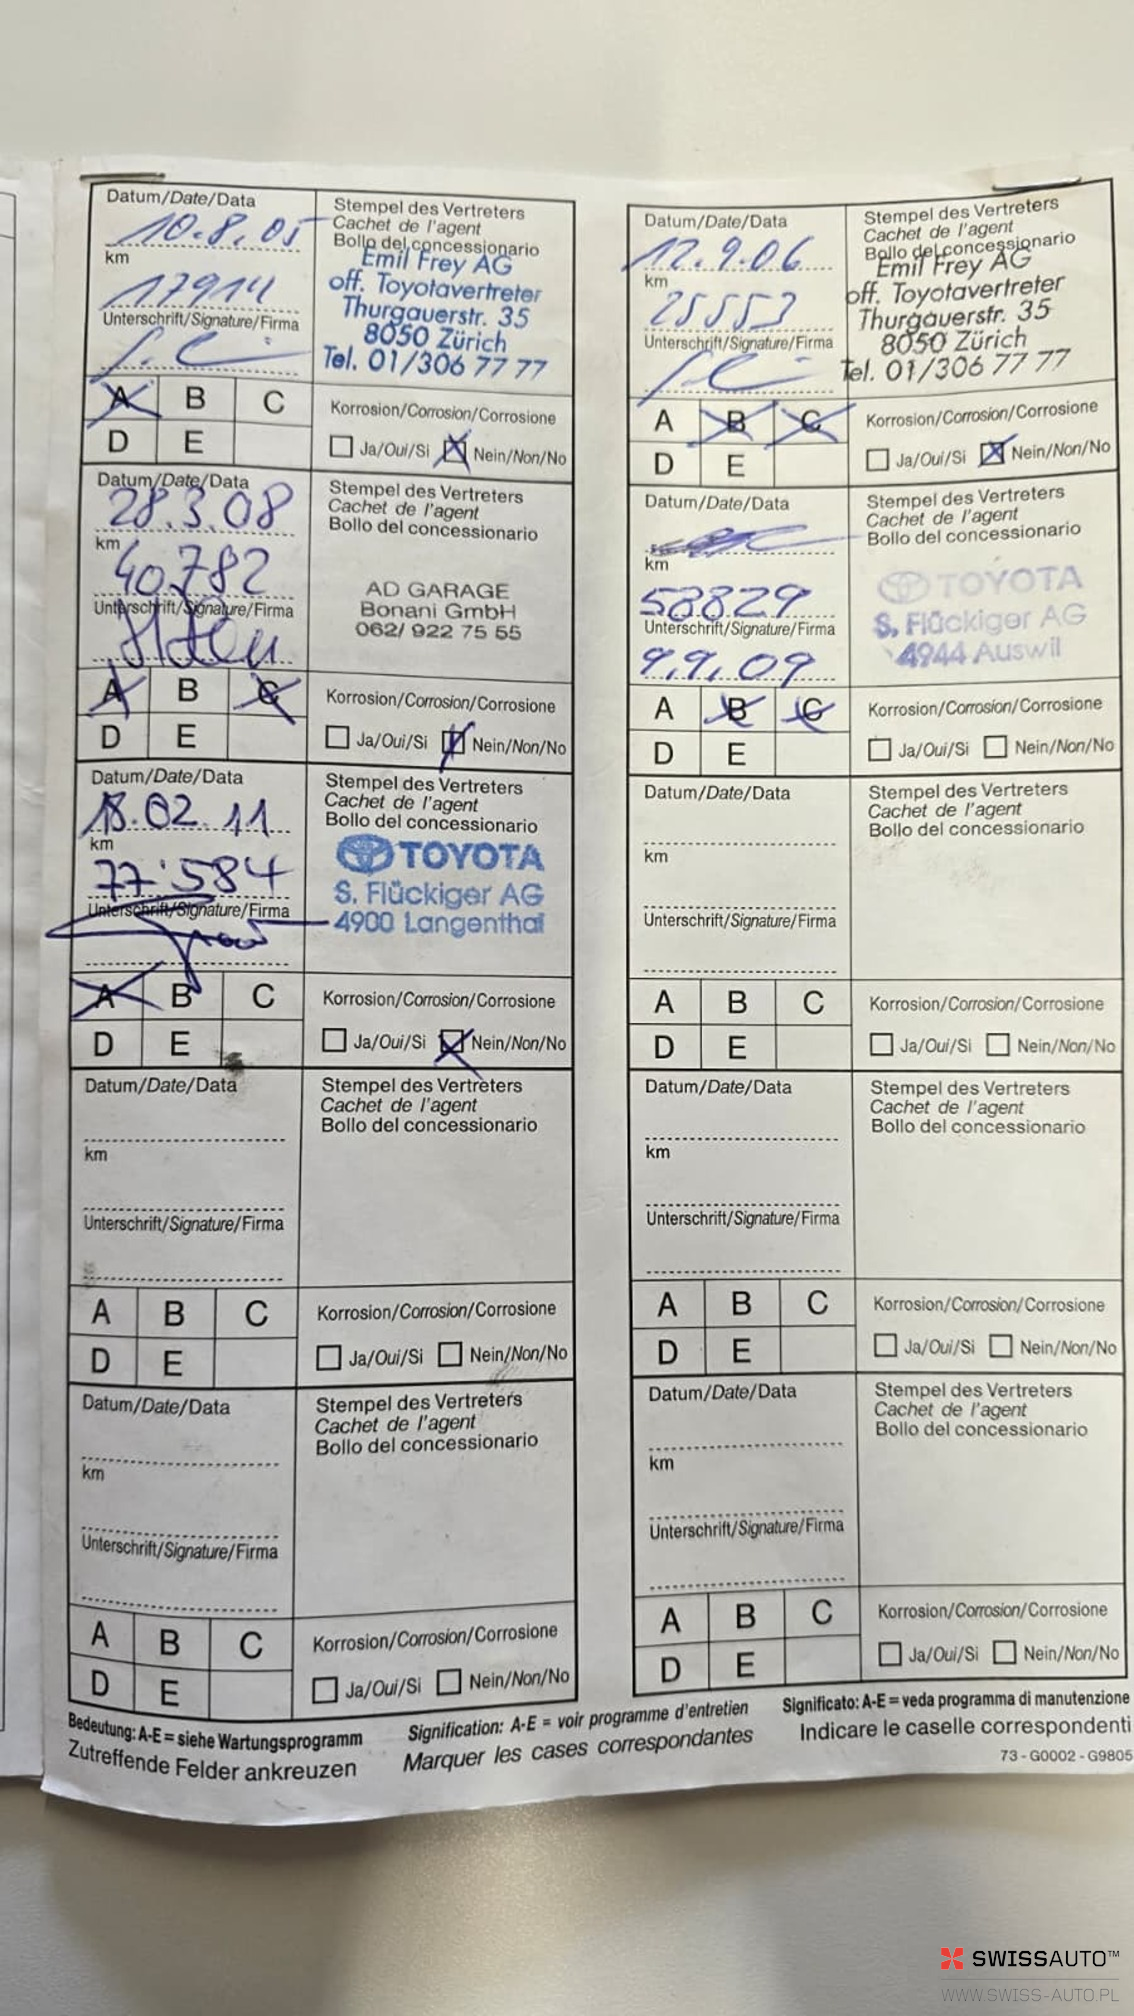 Datum/Date/Data
10.8.05
km
17914
Unterschrift/Signature/Firma
Stempel des Vertreters
Cachet de l'agent
Bollo del concessionario
Emil Frey AG
off. Toyotavertreter
Thurgauerstr. 35
8050 Zürich
Tel. 01/306 77 77
A B C
D E
Korrosion/Corrosion/Corrosione
Ja/Oui/Si Nein/Non/No
Datum/Date/Data
12.9.06
km
25553
Unterschrift/Signature/Firma
Stempel des Vertreters
Cachet de l'agent
Bollo del concessionario
Emil Frey AG
off. Toyotavertreter
Thurgauerstr. 35
8050 Zürich
Tel. 01/306 77 77
A B C
D E
Korrosion/Corrosion/Corrosione
Ja/Oui/Si Nein/Non/No
Datum/Date/Data
28.3.08
km
40.782
Unterschrift/Signature/Firma
Stempel des Vertreters
Cachet de l'agent
Bollo del concessionario
AD GARAGE
Bonani GmbH
062/ 922 75 55
A B C
D E
Korrosion/Corrosion/Corrosione
Ja/Oui/Si Nein/Non/No
Datum/Date/Data
km
58829
Unterschrift/Signature/Firma
9.9.09
Stempel des Vertreters
Cachet de l'agent
Bollo del concessionario
TOYOTA
S. Flückiger AG
4944 Auswil
A B C
D E
Korrosion/Corrosion/Corrosione
Ja/Oui/Si Nein/Non/No
Datum/Date/Data
18.02.11
km
77'584
Unterschrift/Signature/Firma
Stempel des Vertreters
Cachet de l'agent
Bollo del concessionario
TOYOTA
S. Flückiger AG
4900 Langenthal
A B C
D E
Korrosion/Corrosion/Corrosione
Ja/Oui/Si Nein/Non/No
Datum/Date/Data
km
Unterschrift/Signature/Firma
Stempel des Vertreters
Cachet de l'agent
Bollo del concessionario
A B C
D E
Korrosion/Corrosion/Corrosione
Ja/Oui/Si Nein/Non/No
Datum/Date/Data
km
Unterschrift/Signature/Firma
Stempel des Vertreters
Cachet de l'agent
Bollo del concessionario
A B C
D E
Korrosion/Corrosion/Corrosione
Ja/Oui/Si Nein/Non/No
Datum/Date/Data
km
Unterschrift/Signature/Firma
Stempel des Vertreters
Cachet de l'agent
Bollo del concessionario
A B C
D E
Korrosion/Corrosion/Corrosione
Ja/Oui/Si Nein/Non/No
Datum/Date/Data
km
Unterschrift/Signature/Firma
Stempel des Vertreters
Cachet de l'agent
Bollo del concessionario
A B C
D E
Korrosion/Corrosion/Corrosione
Ja/Oui/Si Nein/Non/No
Datum/Date/Data
km
Unterschrift/Signature/Firma
Stempel des Vertreters
Cachet de l'agent
Bollo del concessionario
A B C
D E
Korrosion/Corrosion/Corrosione
Ja/Oui/Si Nein/Non/No
Bedeutung: A-E = siehe Wartungsprogramm
Zutreffende Felder ankreuzen
Signification: A-E = voir programme d'entretien
Marquer les cases correspondantes
Significato: A-E = veda programma di manutenzione
Indicare le caselle correspondenti
73 - G0002 - G9805
SWISSAUTO™
WWW.SWISS-AUTO.PL